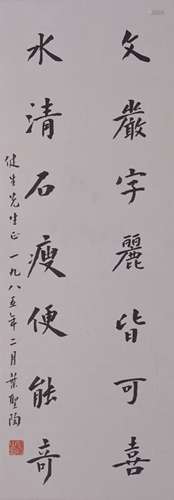 文嚴字麗皆可喜
水清石瘦便能奇
健生先生正 一九八五年二月葉聖陶